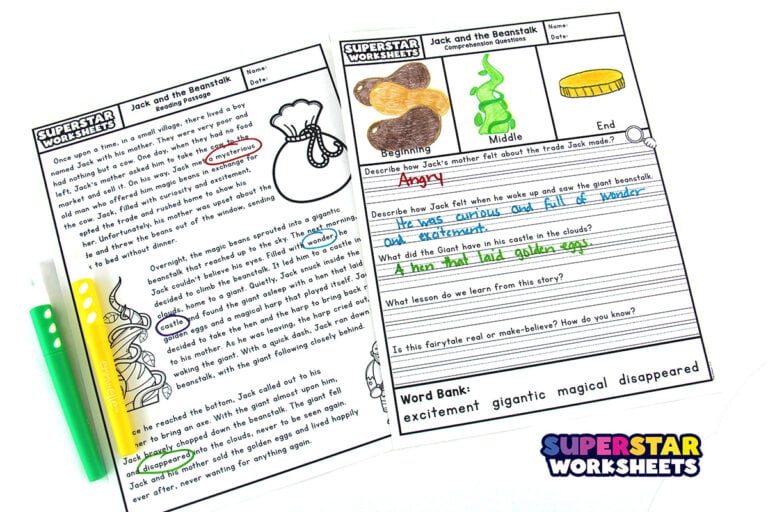 SUPERSTAR
WORKSHEETS
Jack and the Beanstalk
Reading Passage
Name:
Date:
Once upon a time, in a small village, there lived a boy
named Jack with his mother. They were very poor and
had nothing but a cow. One day, when they had no food
left, Jack's mother asked him to take the cow to the
market and sell it. On his way, Jack met a mysterious
old man who offered him magic beans in exchange for
the cow. Jack, filled with curiosity and excitement,
epted the trade and rushed home to show his
her. Unfortunately, his mother was upset about the
le and threw the beans out of the window, sending
k to bed without dinner.
Overnight, the magic beans sprouted into a gigantic
beanstalk that reached up to the sky. The next morning,
Jack couldn't believe his eyes. Filled with wonder, he
decided to climb the beanstalk. It led him to a castle in
clouds, home to a giant. Quietly, Jack snuck inside the
castle and found the giant asleep with a hen that laid
golden eggs and a magical harp that played itself. Jac
decided to take the hen and the harp to bring back
to his mother. As he was leaving, the harp cried out,
waking the giant. With a quick dash, Jack ran down
beanstalk, with the giant following closely behind.
ce he reached the bottom, Jack called out to his
her to bring an axe. With the giant almost upon him,
Jack bravely chopped down the beanstalk. The giant fell
and disappeared into the clouds, never to be seen again.
Jack and his mother sold the golden eggs and lived happily
ever after, never wanting for anything again.
SUPERSTAR
WORKSHEETS
Jack and the Beanstalk
Comprehension Questions
Name:
Date:
Beginning
Middle
End
Describe how Jack's mother felt about the trade Jack made.?
Angry
Describe how Jack felt when he woke up and saw the giant beanstalk.
He was curious and full of wonder
and excitement.
What did the Giant have in his castle in the clouds?
A hen that laid golden eggs.
What lesson do we learn from this story?
Is this fairytale real or make-believe? How do you know?
Word Bank:
excitement gigantic magical disappeared
SUPERSTAR
WORKSHEETS